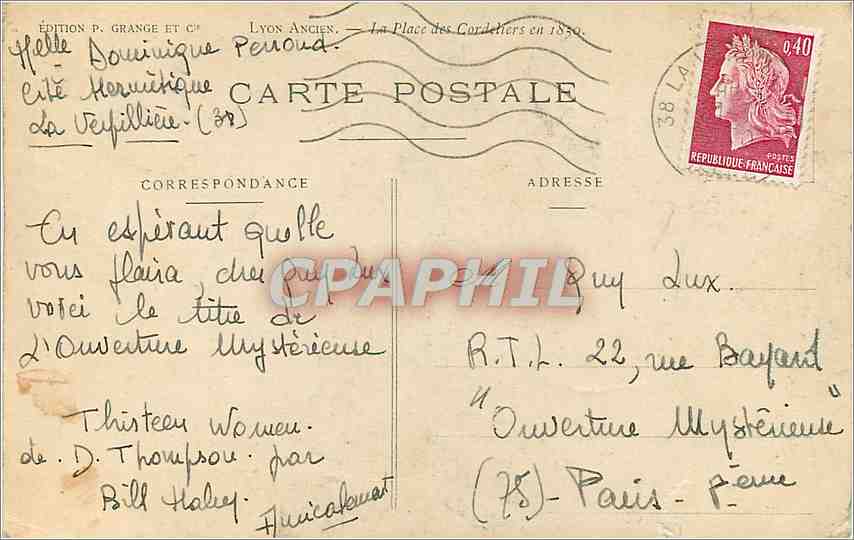 ÉDITION P. GRANGE ET Cie LYON ANCIEN. — La Place des Cordeliers en 1850.
Melle Dominique Perroud.
Cité Hermétique
La Verpillière - (38)
CARTE POSTALE
38 LA
0,40
POSTES
REPUBLIQUE FRANÇAISE
CORRESPONDANCE
En espérant quelle
vous plaira, cher Guy Lux
voici le titre de
L'Ouverture Mystérieuse
Thirteen Women.
de . D. Thompson . par
Bill Haley.
Amicalement
CPAPHIL
ADRESSE
Guy Lux.
R.T.L. 22, rue Bayard
"Ouverture Mystérieuse"
(75) - Paris - 8ème